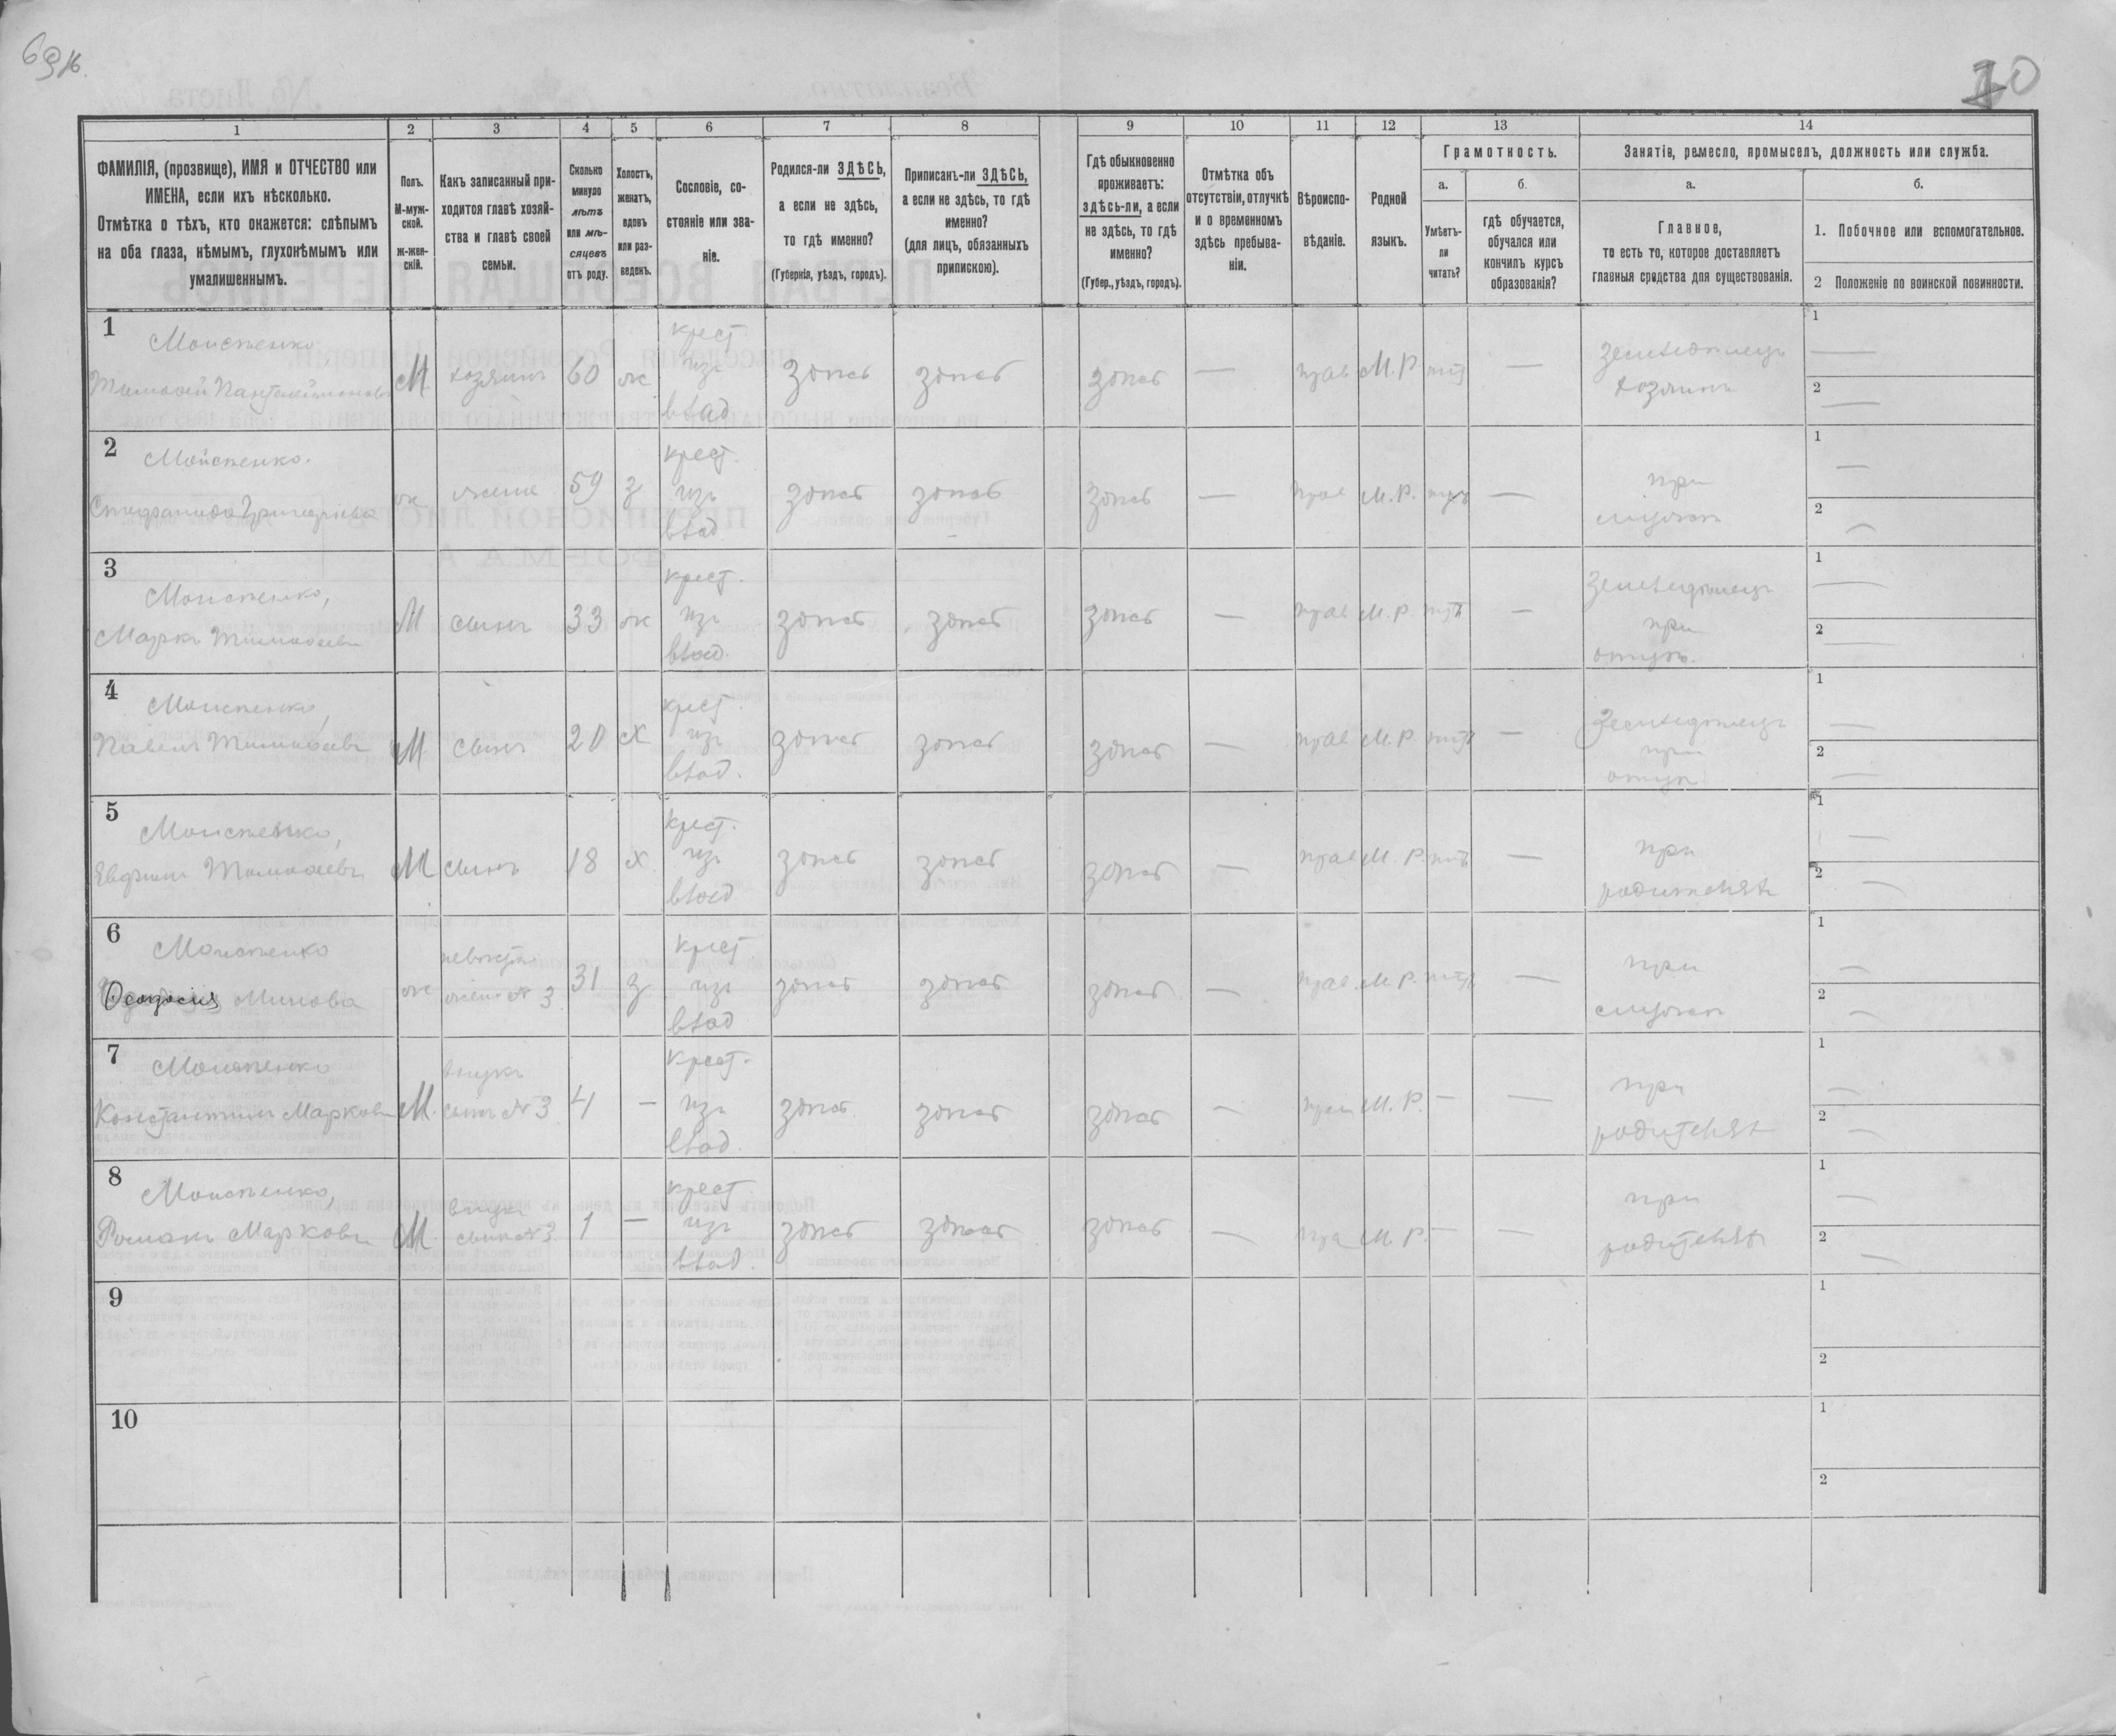 1
2
3
4
5
6
7
8
9
10
11
12
13
14
ФАМИЛІЯ, (прозвище), ИМЯ и ОТЧЕСТВО или
ИМЕНА, если ихъ нѣсколько.
Отмѣтка о тѣхъ, кто окажется: слѣпымъ
на оба глаза, нѣмымъ, глухонѣмымъ или
умалишеннымъ.
Полъ.
М-муж-
ской.
ж-жен-
скій.
Какъ записанный при-
ходится главѣ хозяй-
ства и главѣ своей
семьи.
Сколько
минуло
лѣтъ
или мѣ-
сяцевъ
отъ роду.
Холостъ,
женатъ,
вдовъ
или раз-
веденъ.
Сословіе, со-
стояніе или зва-
ніе.
Родился-ли ЗДѢСЬ,
а если не здѣсь,
то гдѣ именно?
(Губернія, уѣздъ, городъ).
Приписанъ-ли ЗДѢСЬ,
а если не здѣсь, то гдѣ
именно?
(для лицъ, обязанныхъ
припискою).
Гдѣ обыкновенно
проживаетъ:
здѣсь-ли, а если
не здѣсь, то гдѣ
именно?
(Губер., уѣздъ, городъ).
Отмѣтка объ
отсутствіи, отлучкѣ
и о временномъ
здѣсь пребыва-
ніи.
Вѣроиспо-
вѣданіе.
Родной
языкъ.
Грамотность.
а.
Умѣетъ-
ли
читать?
б.
гдѣ обучается,
обучался или
кончилъ курсъ
образованія?
Занятіе, ремесло, промыселъ, должность или служба.
а.
Главное,
то есть то, которое доставляетъ
главныя средства для существованія.
б.
1. Побочное или вспомогательное.
2 Положеніе по воинской повинности.
1
Моисѣенко
Тимофей
М
хозяинъ
60
ж
крест
изъ
влад
здѣсь
здѣсь
здѣсь
—
прав
М.Р.
нѣтъ
—
Земледѣлецъ
хозяинъ
1 —
2 —
2
Моисѣенко.
Стефанида Григорьева
ж
жена
59
з
крест.
изъ
влад
здѣсь
здѣсь
здѣсь
—
прав
М.Р.
нѣтъ
—
при
1 —
2 —
3
Моисѣенко,
Маркъ Тимофеевъ
М
сынъ
33
ж
крест.
изъ
влад.
здѣсь
здѣсь
здѣсь
—
прав
М.Р.
нѣтъ
—
Земледѣлецъ
при
отцѣ.
1 —
2 —
4
Моисѣенко,
Павелъ Тимофеевъ
М
сынъ
20
х
крест.
изъ
влад.
здѣсь
здѣсь
здѣсь
—
прав
М.Р.
нѣтъ
—
Земледѣлецъ
при
отцѣ
1 —
2 —
5
Моисѣенко,
Евфим Тимофеевъ
М
сынъ
18
х
крест.
изъ
влад
здѣсь
здѣсь
здѣсь
—
прав
М.Р.
нѣтъ
—
при
родителях
1 —
2 —
6
Моисѣенко
Феодосия Минова
ж
невѣстка
жена № 3
31
з
крест
изъ
влад
здѣсь
здѣсь
здѣсь
—
прав.
М.Р.
нѣтъ
—
при
1 —
2 —
7
Моисѣенко
Константинъ Марковъ
М.
внукъ
сынъ № 3
4
—
крест.
изъ
влад.
здѣсь
здѣсь
здѣсь
—
прав
М.Р.
—
—
при
родителях
1 —
2 —
8
Моисѣенко,
Романъ Марковъ
М.
внукъ
сынъ № 3
1
—
крест
изъ
влад.
здѣсь
здѣсь
здѣсь
—
пра
М.Р.
—
—
при
родителях
1 —
2 —
9
1
2
10
1
2